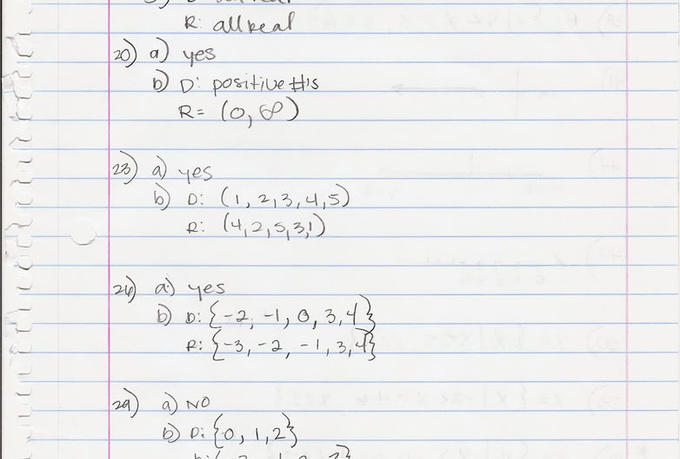 R: all real
20) a) yes
b) D: positive #'s
R= (0, ∞)
23) a) yes
b) D: (1, 2, 3, 4, 5)
R: (4, 2, 5, 3, 1)
26) a) yes
b) D: {-2, -1, 0, 3, 4}
R: {-3, -2, -1, 3, 4}
29) a) NO
b) D: {0, 1, 2}